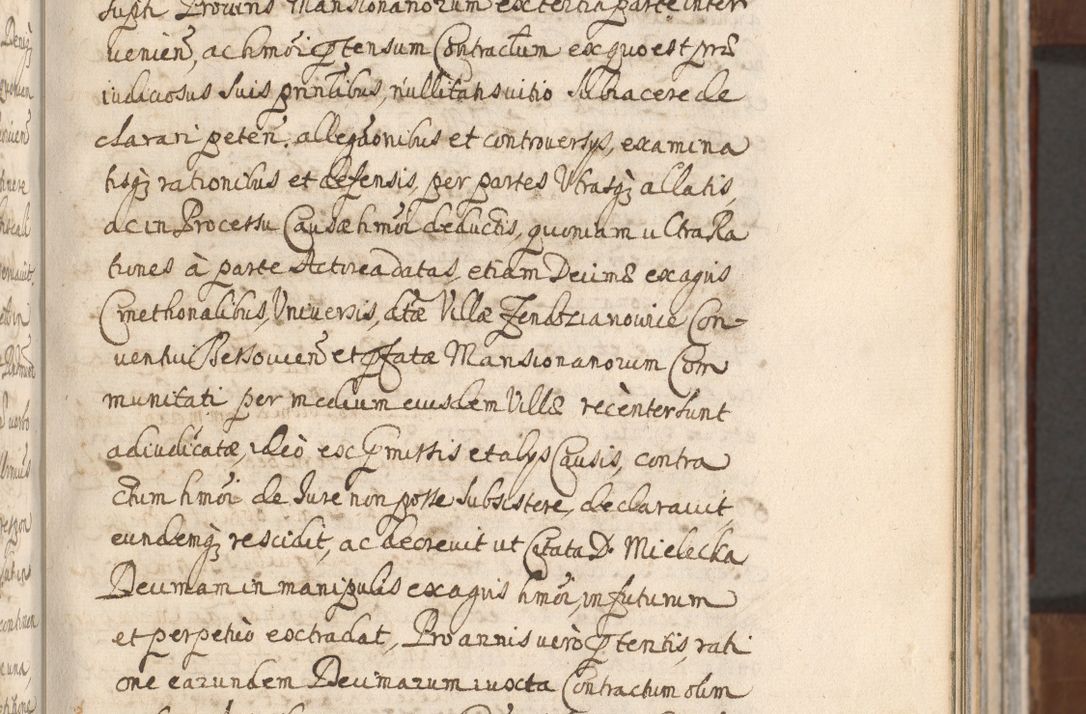 supti Provins Mansionariorum ex tertia parte inter
venien, ac hmoi ptensum Contractum ex quo est prae
iudiciosus suis prinlibus, nullitatis vitio subiacere de
clarari peten. allegaonibus et controversys, examina
tisq; rationibus et defensis, per partes Utrasq; allatis,
ac in Processu Causae hmoi deductis, quoniam ultra Ra
tiones à parte Actorea datas, etiam Decimae ex agris
Cmethonalibus, Universis, dtae Villae Jendrzianowice Con-
ventui Bessovien et pfatae Mansionariorum Com
munitati per medium eiusdem Villae recènter sunt
adiudicatae, ideò ex pmissis et alys Causis, contra
ctum hmoi de Iure non posse subsistere, declaravit
eundemq; rescidit, ac decrevit ut Citata D. Mielecka
Decimam in manipulis ex agris hmoi, in futurum
et perpetuò extradat, Pro annis verò ptentis, rati
one earundem Decimarum iuxta Contractum olim